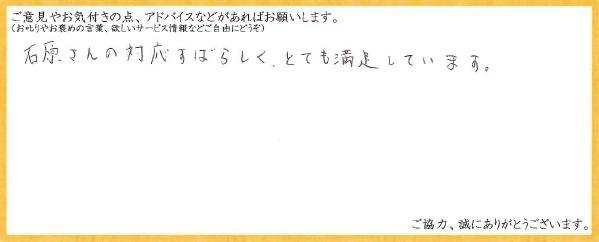 ご意見やお気付きの点、アドバイスなどがあればお願いします。
(お叱りやお褒めの言葉、欲しいサービス情報などご自由にどうぞ)
石原さんの対応すばらしく、とても満足しています。
ご協力、誠にありがとうございます。